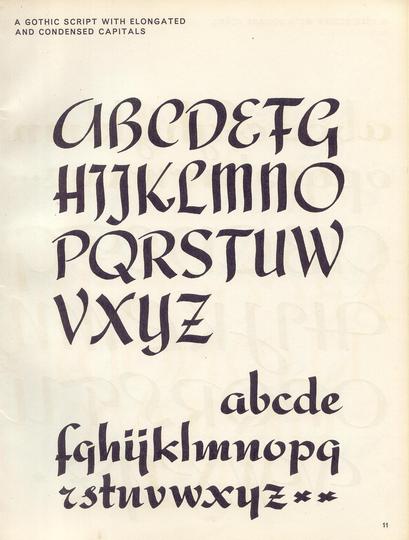 A GOTHIC SCRIPT WITH ELONGATED
AND CONDENSED CAPITALS
ABCDEFG
HIJKLMNO
PQRSTUW
VXYZ
abcde
fghijklmnopq
rstuvwxyz
11